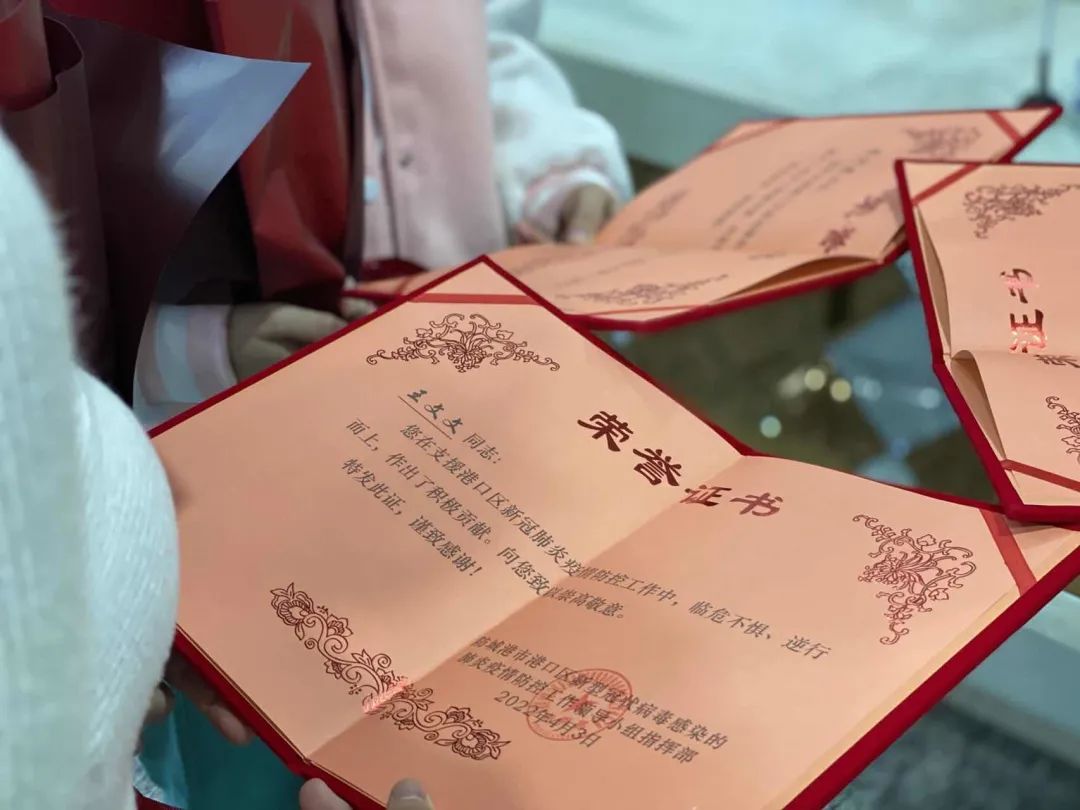 荣誉证书
王文文 同志：
您在支援港口区新冠肺炎疫情防控工作中，临危不惧、逆行
而上，作出了积极贡献。向您致以崇高敬意。
特发此证，谨致感谢！
防城港市港口区新型冠状病毒感染的
肺炎疫情防控工作领导小组指挥部
2022年4月3日
证书